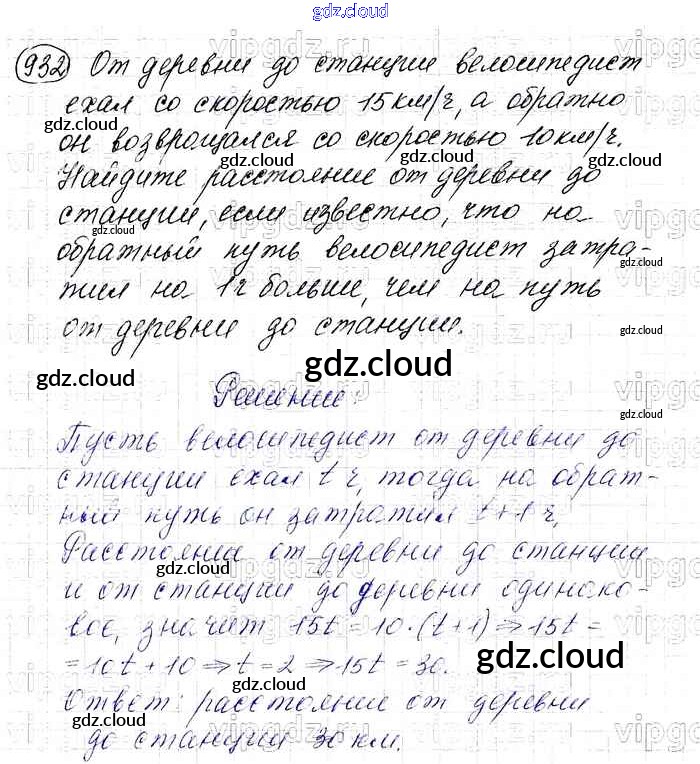 gdz.cloud
932 От деревни до станции велосипедист
ехал со скоростью 15 км/ч, а обратно
gdz.cloud
gdz.cloud
он возвращался со скоростью 10 км/ч.
gdz.cloud
gdz.cloud
Найдите расстояние от деревни до
станции, если известно, что на
gdz.cloud
обратный путь велосипедист затра-
gdz.cloud
тил на 1 ч больше, чем на путь
от деревни до станции.
gdz.cloud
gdz.cloud
gdz.cloud
Решение:
gdz.cloud
Пусть велосипедист от деревни до
станции ехал t ч, тогда на обрат-
ный путь он затратил t+1 ч,
Расстояние от деревни до станции
gdz.cloud
и от станции до деревни одинако-
gdz.cloud
вое, значит 15t = 10·(t+1) ⇒ 15t =
= 10t + 10 ⇒ t = 2 ⇒ 15t = 30.
gdz.cloud
gdz.cloud
Ответ: расстояние от деревни
до станции 30 км.
gdz.cloud